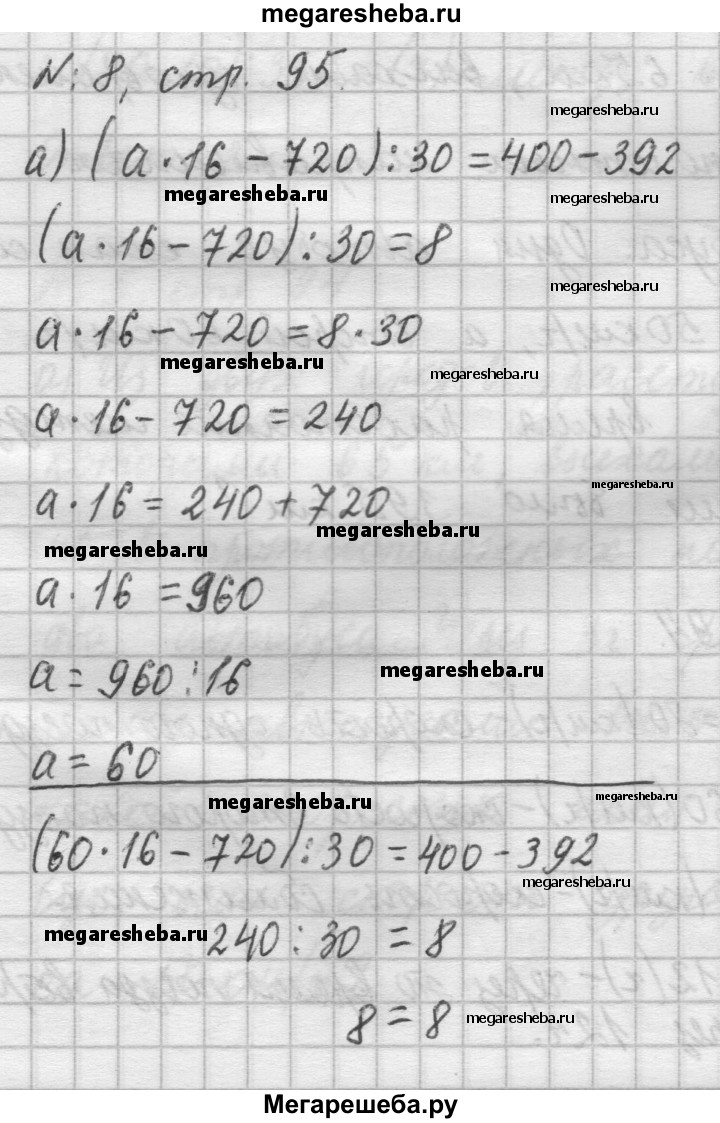 megaresheba.ru
№ 8, стр. 95.
megaresheba.ru
а) (а·16-720):30=400-392
megaresheba.ru
megaresheba.ru
(а·16-720):30=8
megaresheba.ru
а·16-720=8·30
megaresheba.ru
megaresheba.ru
а·16-720=240
megaresheba.ru
а·16=240+720
megaresheba.ru
megaresheba.ru
а·16=960
megaresheba.ru
а=960:16
а=60
megaresheba.ru
megaresheba.ru
(60·16-720):30=400-392
megaresheba.ru
megaresheba.ru
240:30=8
8=8
megaresheba.ru
Мегарешеба.ру